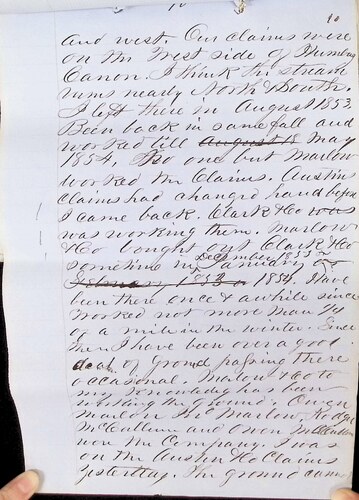 10
10
and west. Our claims were
on the West side of Humbug
Canon. I think the stream
runs nearly North & South.
I left there in August 1853
Been back in same fall and
worked till August 18 May
1854. No one but Marlow
worked the Claims. Austins
claims had changed hands before
I came back. Clark & Co was
was working them. Marlow
& Co bought out Clark & Co
sometime in December 1853 or
January or
1853 or 1854. I have
been there once & awhile since
worked not more than 1/4
of a mile in the winter. Since
then I have been over a good
deal of ground passing there
occasional. Malow & Co to
my knowledge has been
working the ground. Owen
Marlow Marlow Rodge
McCullum and Owen McCullum
now the Company. I was
on the Austin & Co Claims
yesterday. The ground came